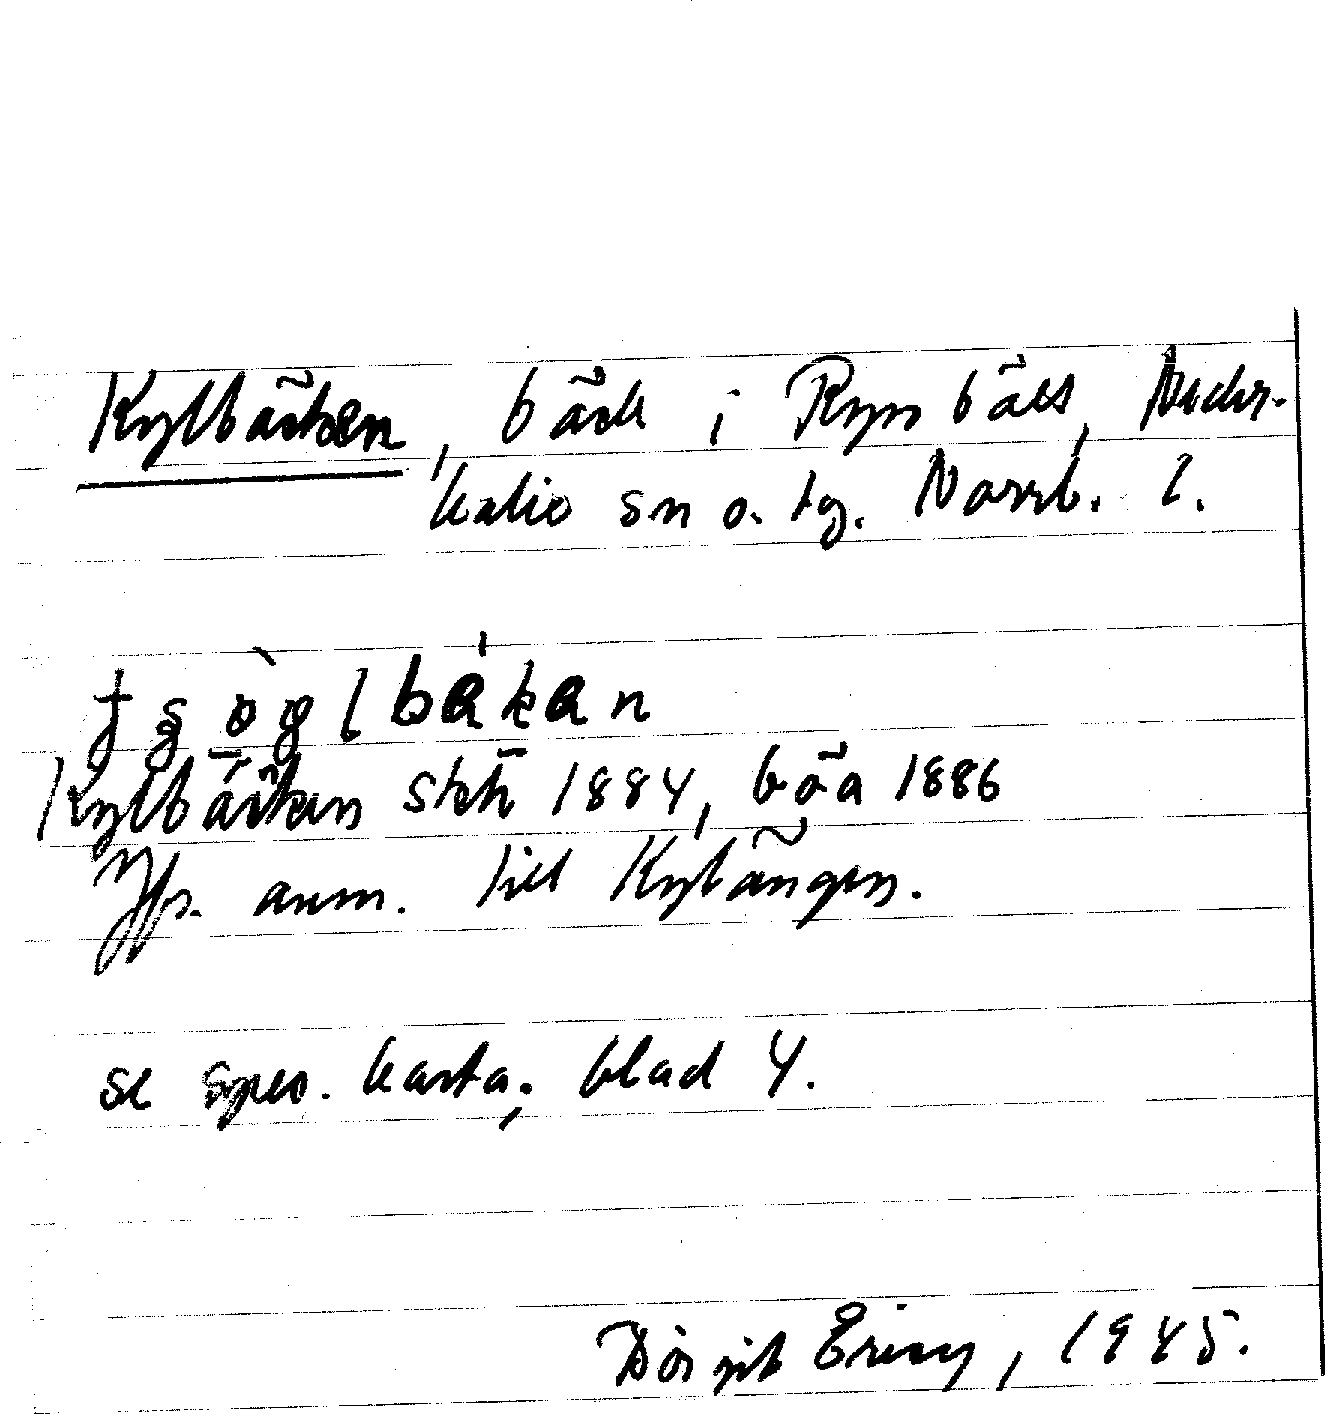 Kylbäcken, bäck i Rynbäck, Neder-
kalix sn o. tg. Norrb. l.
Kylbäcken stch 1884, böa 1886
Jfr. anm. till Kylängen.
se spec. karta; blad 4.
Birgit Ericy, 1945.